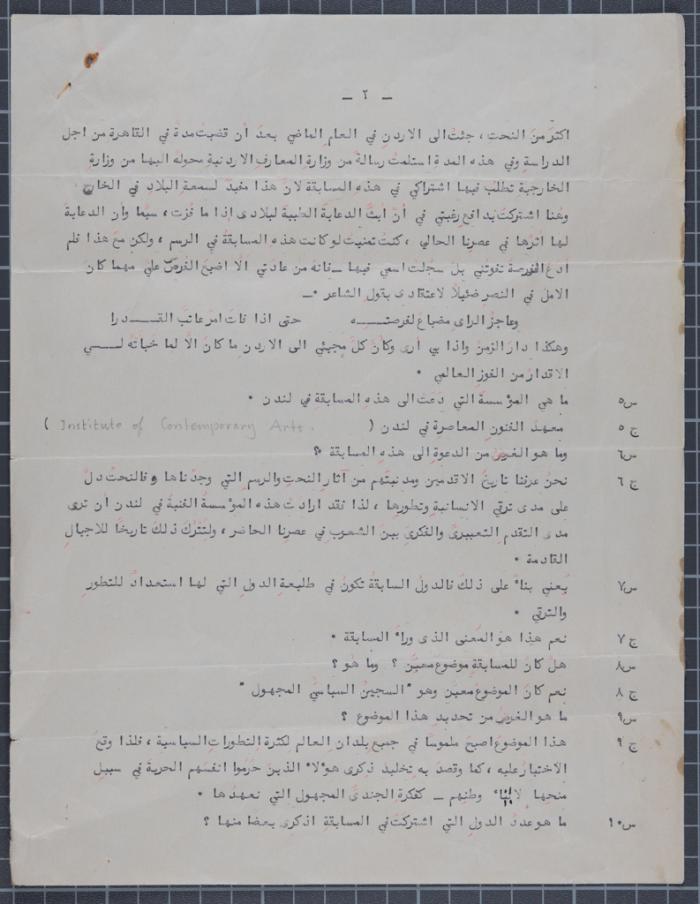 — ٢ —
اكثر من النحت ، جئت الى الاردن في العام الماضي بعد أن قضيت مدة في القاهرة من اجل
الدراسة وفي هذه المدة استلمت رسالة من وزارة المعارف الاردنية محوله اليها من وزارة
الخارجية تطلب فيها اشتراكي في هذه المسابقة لان هذا مفيد لسمعة البلاد في الخارج
وهنا اشتركت بدافع رغبتي في أن ابث الدعاية الطيبة لبلادى اذا ما فزت ، سيما وأن الدعاية
لها اثرها في عصرنا الحالي ، كنت تمنيت لو كانت هذه المسابقة في الرسم ، ولكن مع هذا فلم
ادع الفرصة تفوتني بل سجلت اسمي فيها – فانه من عادتي الا اضيع الفرص علي مهما كان
الامل في النصر ضئيلا لاعتقادى بقول الشاعر ٠–
وعاجز الراى مضياع لفرصتــه حتى اذا فات امر عاتب القــدرا
وهكذا دار الزمن واذا بي أرى وكأن كل مجيئي الى الاردن ما كان الا لما خبأته لــي
الاقدار من الفوز العالمي ٠
س٥ ما هي المؤسسة التي دعت الى هذه المسابقة في لندن ٠
ج ٥ معهد الفنون المعاصرة في لندن ( Institute of Contemporary Arts. )
س٦ وما هو الغرض من الدعوة الى هذه المسابقة ؟
ج ٦ نحن عرفنا تاريخ الاقدمين ومدنيتهم من آثار النحت والرسم التي وجدناها و فالنحت دل
على مدى ترقي الانسانية وتطورها ، لذا فقد ارادت هذه المؤسسة الفنية في لندن ان ترى
مدى التقدم التعبيرى والفكرى بين الشعوب في عصرنا الحاضر ، ولنترك ذلك تاريخا للاجيال
القادمة ٠
س٧ يعني بناء على ذلك فالدول السابقة تكون في طليعة الدول التي لها استعداد للتطور
والترقي ٠
ج ٧ نعم هذا هو المعنى الذى وراء المسابقة ٠
س٨ هل كان للمسابقة موضوع معين ؟ وما هو ؟
ج ٨ نعم كان الموضوع معين وهو "السجين السياسي المجهول "
س٩ ما هو الغرض من تحديد هذا الموضوع ؟
ج ٩ هذا الموضوع اصبح ملموسا في جميع بلدان العالم لكثرة التطورات السياسية ، فلذا وقع
الاختيار عليه ، كما وقصد به تخليد ذكرى هؤلاء الذين حرموا انفسهم الحرية في سبيل
منحها لابناء وطنهم – كفكرة الجندى المجهول التي نعهدها ٠
س١٠ ما هو عدد الدول التي اشتركت في المسابقة اذكرى بعضا منها ؟